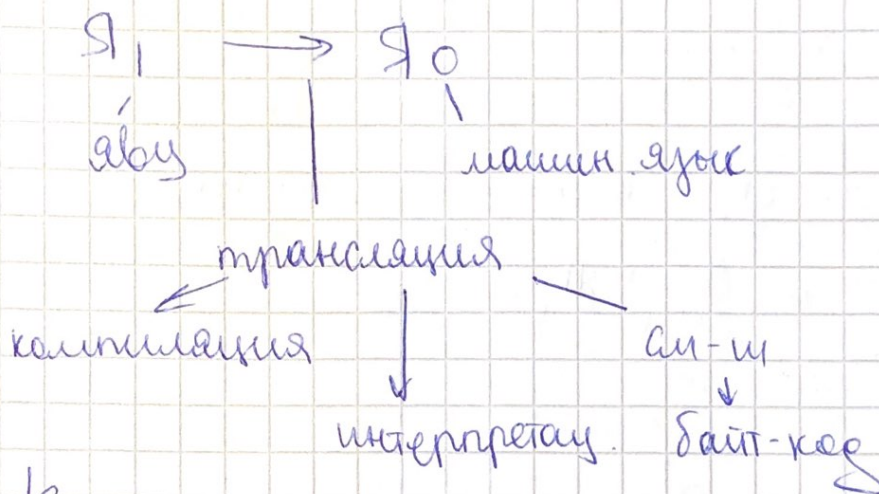 Я₁ → Я₀
явы машин. язык
трансляция
компиляция см-ш
интерпретац. байт-код